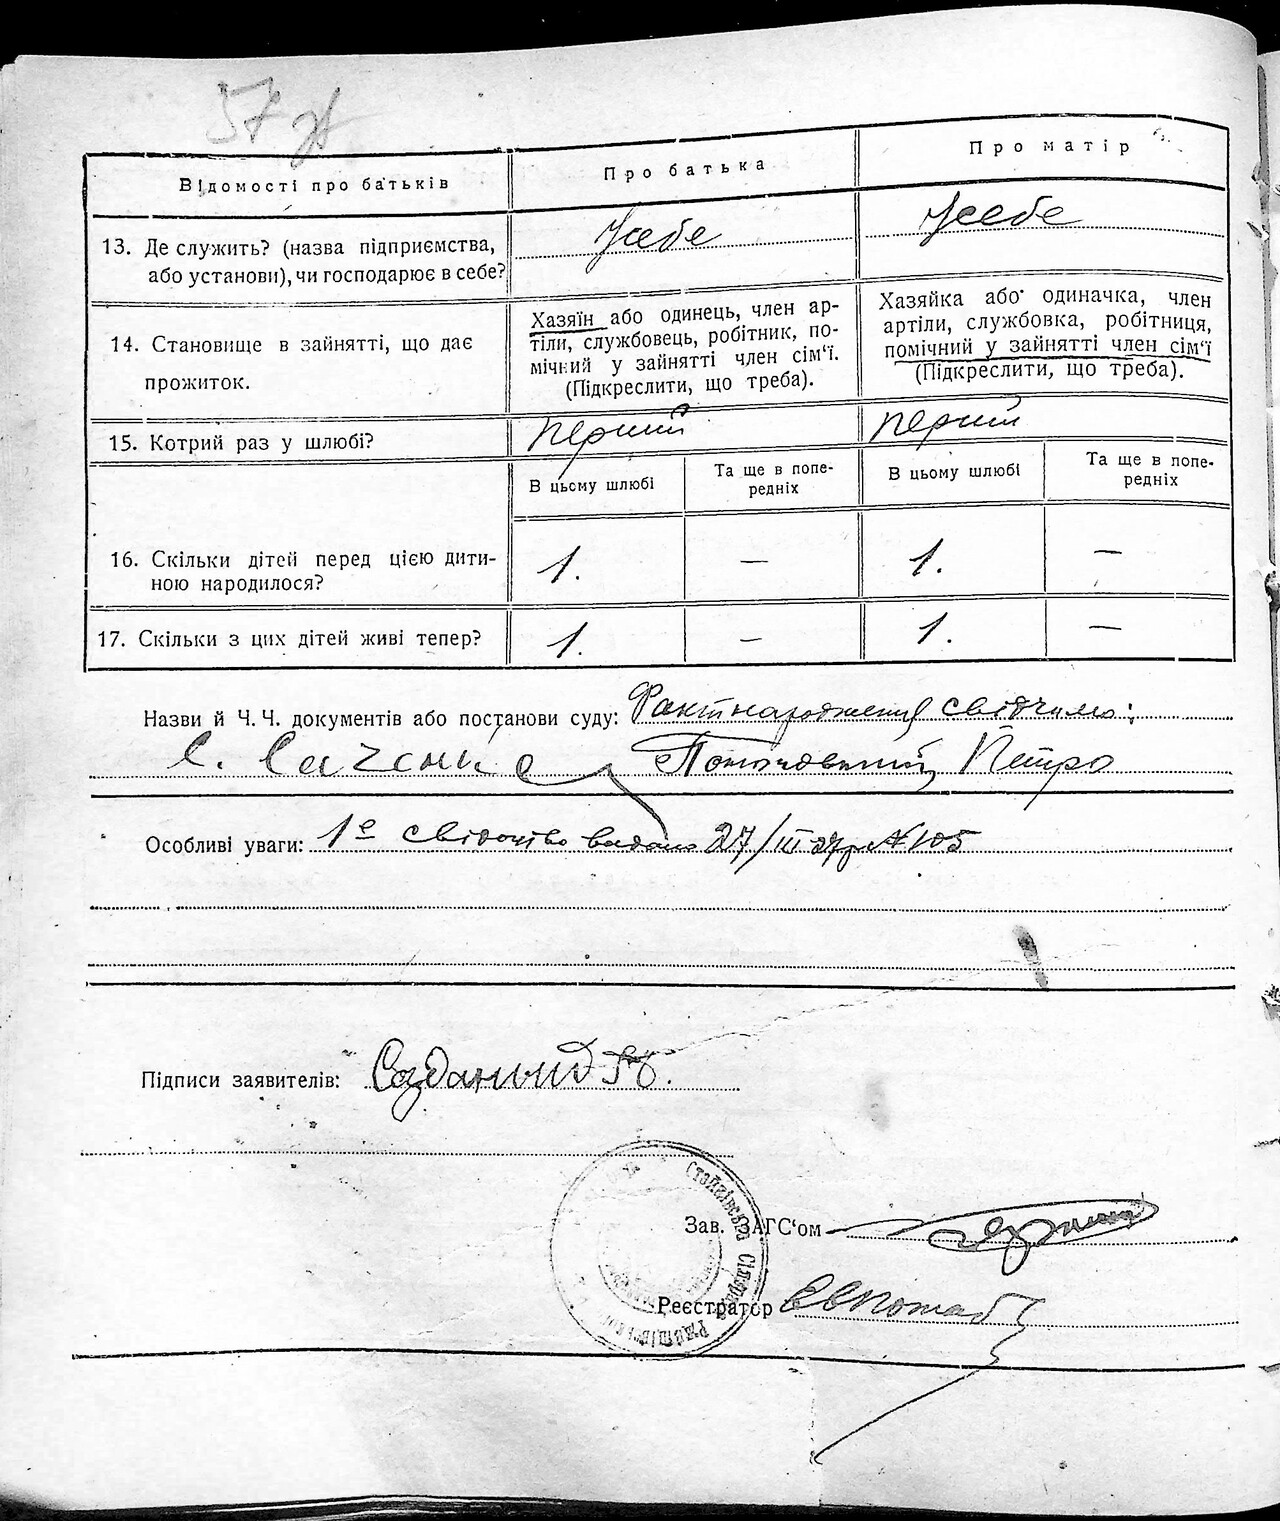 57 зв
Відомості про батьків
Про батька
Про матір
13. Де служить? (назва підприємства,
або установи), чи господарює в себе?
Усебе
Усебе
14. Становище в зайнятті, що дає
прожиток.
Хазяїн або одинець, член ар-
тіли, службовець, робітник, по-
мічний у зайнятті член сім'ї.
(Підкреслити, що треба).
Хазяйка або одиначка, член
артіли, службовка, робітниця,
помічний у зайнятті член сім'ї
(Підкреслити, що треба).
15. Котрий раз у шлюбі?
перший
перший
В цьому шлюбі
Та ще в попе-
редніх
В цьому шлюбі
Та ще в попе-
редніх
16. Скільки дітей перед цією дити-
ною народилося?
1.
—
1.
—
17. Скільки з цих дітей живі тепер?
1.
—
1.
—
Назви й Ч. Ч. документів або постанови суду: Факт народження свідчимо:
С. Саченко Петро
Особливі уваги: 1е свідоцтво видано 27/III 27р № 105
Підписи заявителів:
Зав. ЗАГС'ом
Реєстратор
Стайківська Сільрада Ржищівського